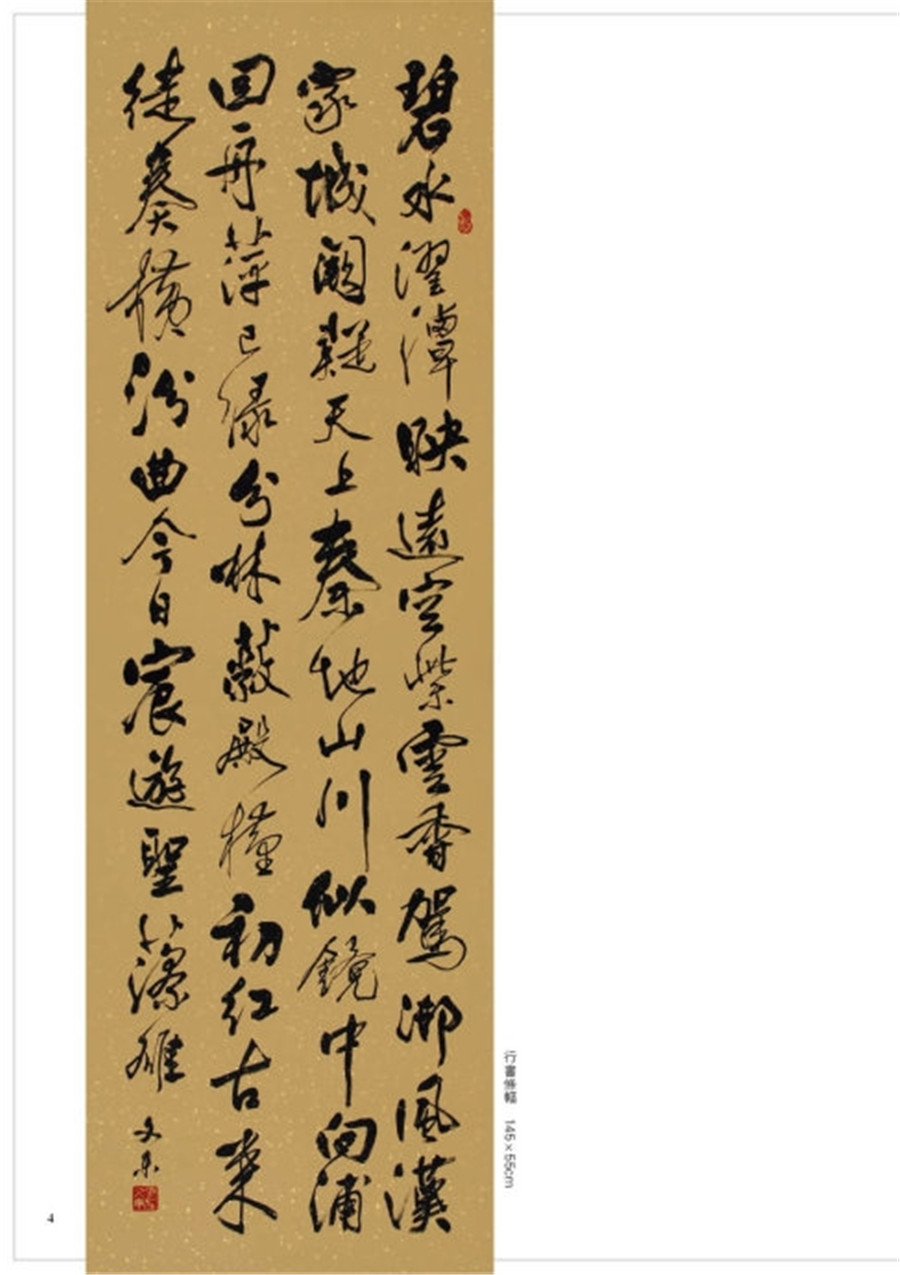 碧水澄潭映遠空紫雲香駕御風漢
家城闕疑天上秦地山川似鏡中向浦
回舟萍已綠分林蔽殿槿初紅古來
徒奏橫汾曲今日宸遊聖藻雄
文东
行書條幅 145×55cm
4